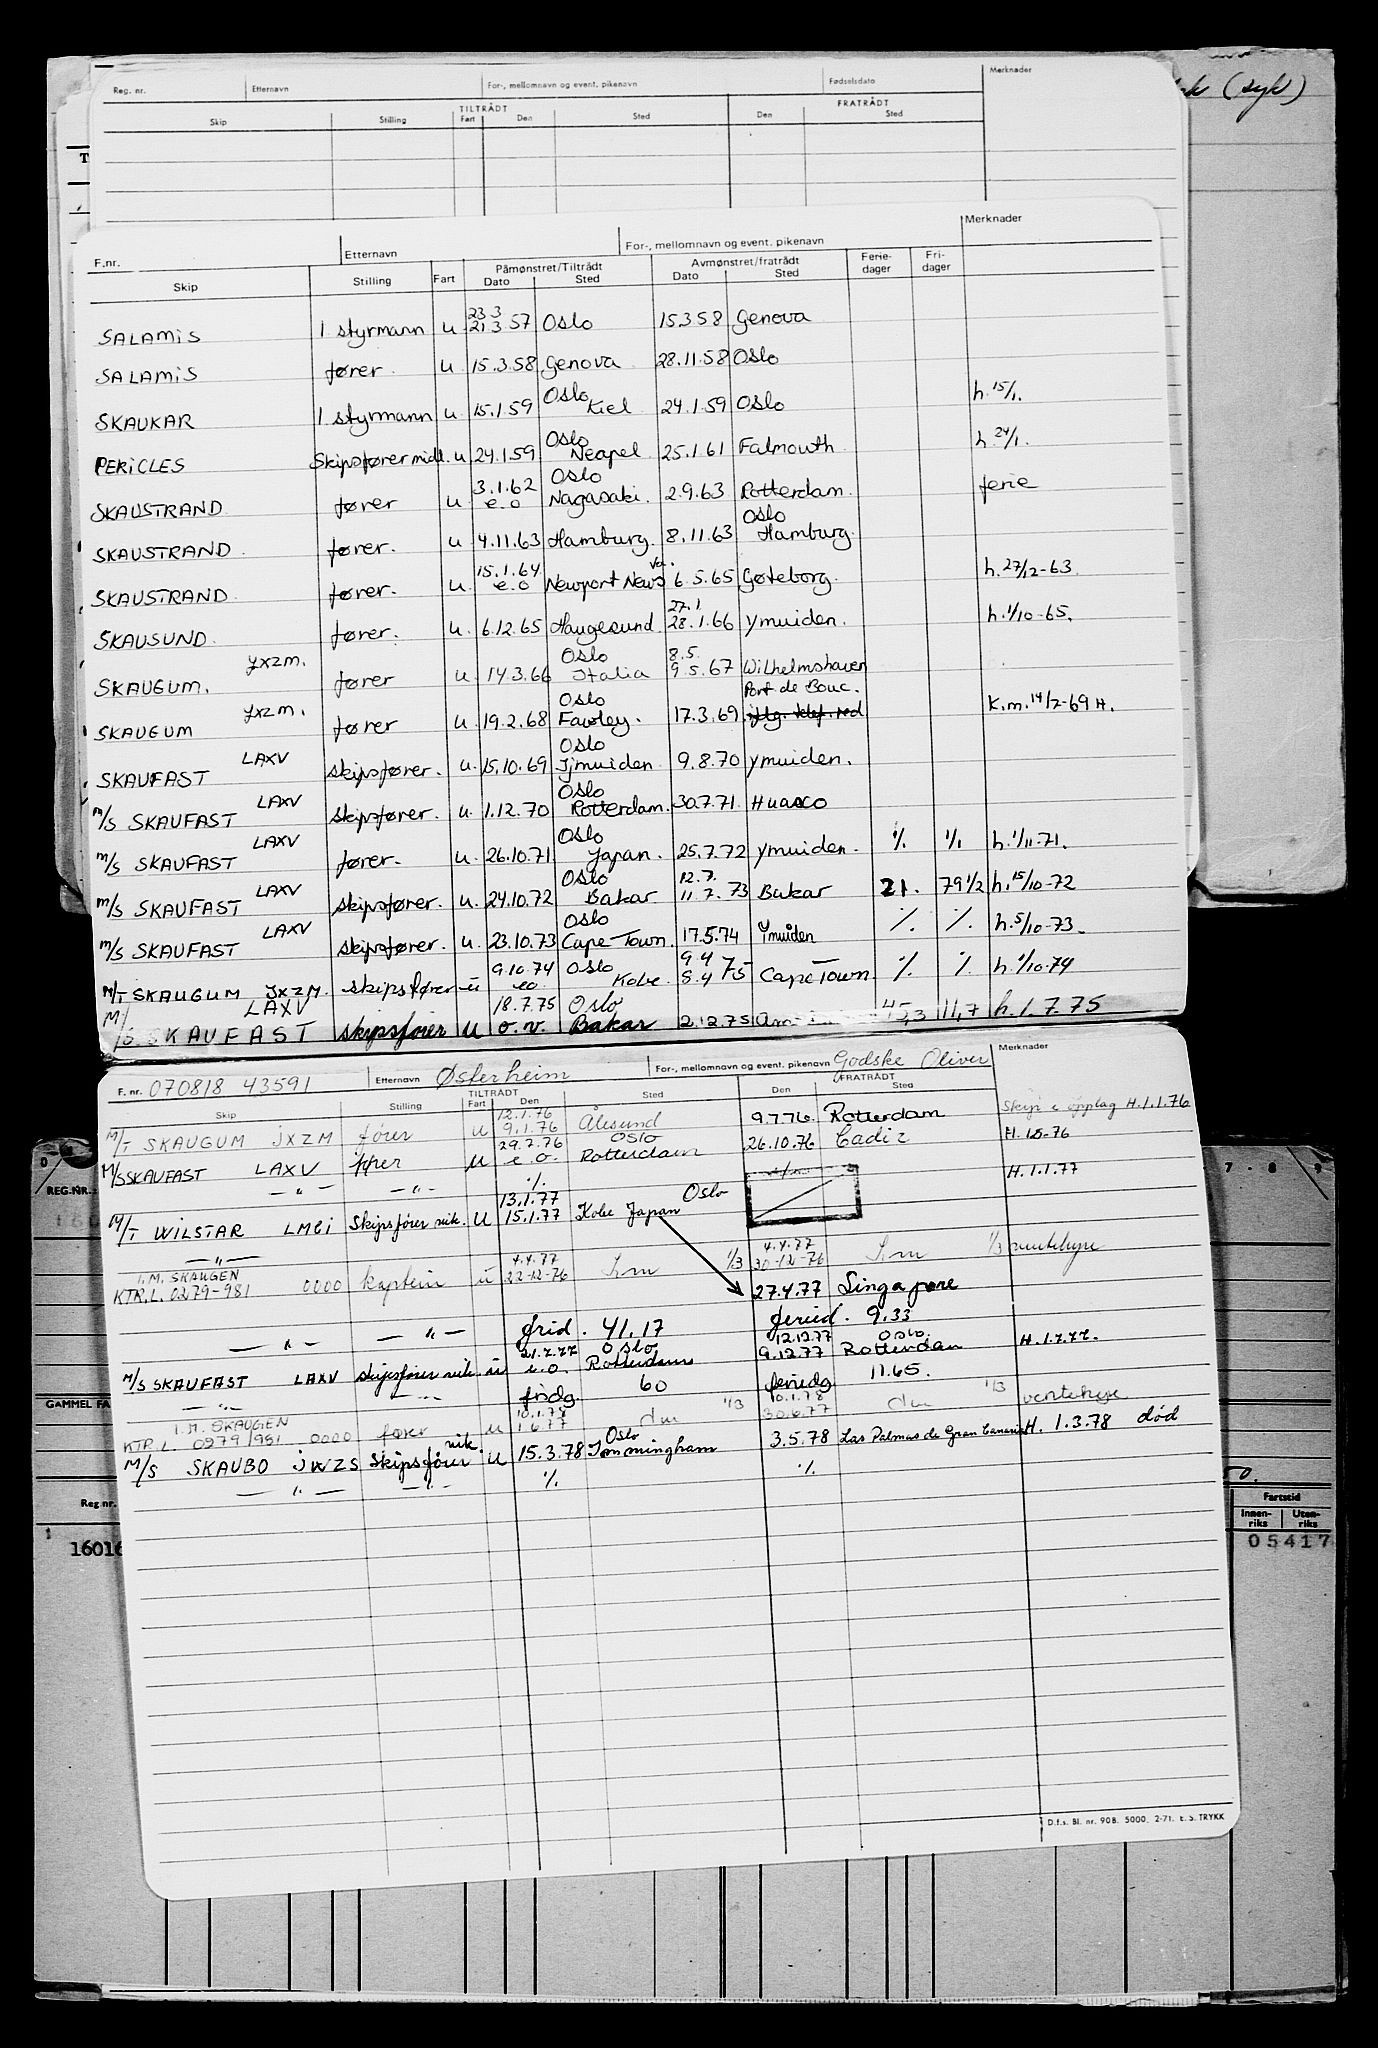 (syk)
Reg. nr. Etternavn For-, mellomnavn og event. pikenavn Fødselsdato Merknader
TILTRÅDT FRATRÅDT
Skip Stilling Fart Den Sted Den Sted
T
F.nr. Etternavn For-, mellomnavn og event. pikenavn Merknader
Påmønstret/Tiltrådt Avmønstret/fratrådt Ferie-dager Fri-dager
Skip Stilling Fart Dato Sted Dato Sted
23 3
SALAMIS 1 styrmann u 21.3 57 Oslo 15.3.58 Genova
SALAMIS fører. u 15.3.58 Genova 28.11.58 Oslo
Oslo
SKAUKAR 1 styrmann u 15.1.59 Kiel 24.1.59 Oslo h. 15/1.
Oslo
PERICLES Skipsfører midl. u 24.1.59 Neapel 25.1.61 Falmouth h. 24/1.
3.1.62 Oslo
SKAUSTRAND fører u e.o Nagasaki. 2.9.63 Rotterdam. ferie
Oslo
SKAUSTRAND. fører. u 4.11.63 Hamburg. 8.11.63 Hamburg.
15.1.64 Va.
SKAUSTRAND. fører. u. e.o Newport News 6.5.65 Gøteborg. h. 27/12-63.
27.1
SKAUSUND. fører. u. 6.12.65 Haugesund. 28.1.66 Ymuiden. h. 1/10-65.
Oslo 8.5.
SKAUGUM. JXZM. fører u. 14.3.66 Italia 9.5.67 Wilhelmshaven
Oslo Port de Bouc.
SKAUGUM JXZM. fører u. 19.2.68 Fawley. 17.3.69 K.m. 14/2-69 H.
Oslo
SKAUFAST LAXV skipsfører. u. 15.10.69 Ijmuiden 9.8.70 Ymuiden.
Oslo
M/S SKAUFAST LAXV skipsfører. u. 1.12.70 Rotterdam. 30.7.71 Huasco
Oslo
M/S SKAUFAST LAXV fører. u. 26.10.71 Japan. 25.7.72 Ymuiden. % % h. 1/11.71.
Oslo 12.7.
M/S SKAUFAST LAXV skipsfører. u. 24.10.72 Bakar 11.7.73 Bakar 21. 79 1/2 h. 15/10-72
Oslo
M/S SKAUFAST LAXV skipsfører. u. 23.10.73 Cape-Town. 17.5.74 Ymuiden % % h. 5/10-73.
9.10.74 Oslo 9.4
M/T SKAUGUM JXZM. skipsfører u eo Kobe 8.4 75 Cape Town % % h. 1/10-74
18.7.75 Oslo
M/S SKAUFAST LAXV skipsfører u o.v. Bakar 2.12.75 45,3 11,7 h. 1.7.75
F. nr. 070818 43591 Etternavn Østerheim For-, mellomnavn og event. pikenavn Godske Oliver Merknader
TILTRÅDT FRATRÅDT
Skip Stilling Fart Den Sted Den Sted
12.1.76
M/T SKAUGUM JXZM fører u 9.1.76 Ålesund 9.7.76. Rotterdam Skip i opplag H.1.1.76
29.7.76 Oslo
M/S SKAUFAST LAXV fører u e.o. Rotterdam 26.10.76 Cadiz
— " — — " — % H.1.1.77
13.1.77 Oslo
M/T WILSTAR LMCI Skipsfører vik. u 15.1.77 Kobe Japan
— " — 4.4.77 4.4.77
I.M. SKAUGEN
KTR.L. 0279-981 0000 kaptein u 22-12-76 1/3 30-12-76 1/3 ventehyre
27.4.77 Singapore
— " — — " — frid. 41.17 feried. 9.33
21.7.77 Oslo 12.12.77 Oslo.
M/S SKAUFAST LAXV skipsfører vik. u e.o. Rotterdam 9.12.77 Rotterdam H.1.7.77.
— " — — " — fridg. 60 feriedg 11.65.
I.M. SKAUGEN 10.1.78 1/3 10.1.78 1/3
KTR.L. 0279/981 0000 fører u 1.6.77 30.6.77 ventehyre
Oslo
M/S SKAUBO JWZS Skipsfører vik. u 15.3.78 Immingham 3.5.78 Las Palmas de Gran Canaria H. 1.3.78 død
— " — — " — % %
D.f.s. Bl. nr. 90B. 5000. 2-71. E.S. TRYKK
REG.NR.:
7 - 8 - 9
GAMMEL FA
Reg.nr.
1 16016
Fartstid
Innen-riks Uten-riks
05417